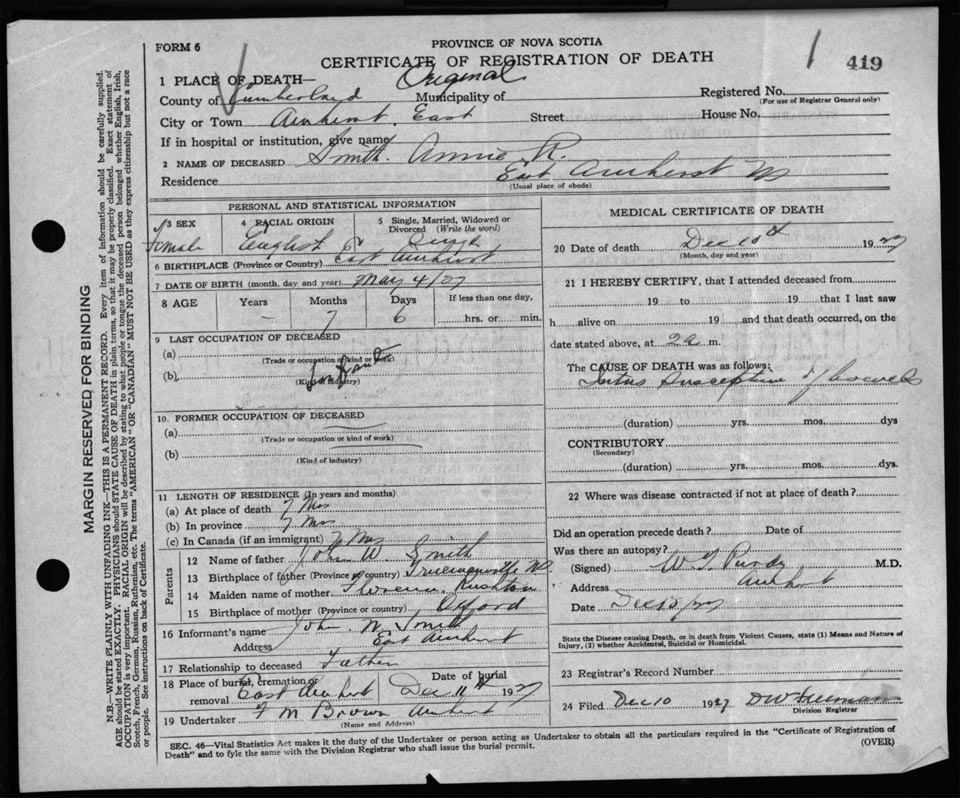 FORM 6
PROVINCE OF NOVA SCOTIA
CERTIFICATE OF REGISTRATION OF DEATH
419
Original
1 PLACE OF DEATH—
County of Cumberland Municipality of Registered No.
(For use of Registrar General only)
City or Town Amherst. East Street House No.
If in hospital or institution, give name
2 NAME OF DECEASED Smith. Annie R.
Residence East Amherst NS
(Usual place of abode)
PERSONAL AND STATISTICAL INFORMATION
3 SEX 4 RACIAL ORIGIN 5 Single, Married, Widowed or Divorced (Write the word)
Female English Single
6 BIRTHPLACE (Province or Country) East Amherst
7 DATE OF BIRTH (month, day and year) May 4/27
8 AGE Years Months Days If less than one day,
– 7 6 hrs. or min.
9 LAST OCCUPATION OF DECEASED
(a)
(Trade or occupation or kind of work)
(b) Infant
(Kind of industry)
10 FORMER OCCUPATION OF DECEASED
(a)
(Trade or occupation or kind of work)
(b)
(Kind of industry)
11 LENGTH OF RESIDENCE (In years and months)
(a) At place of death 7 Mos
(b) In province 7 Mos
(c) In Canada (if an immigrant) 7 Mos
Parents
12 Name of father John W. Smith
13 Birthplace of father (Province or country) Truemanville NS
14 Maiden name of mother Florence Rushton
15 Birthplace of mother (Province or country) Oxford
16 Informant's name John W. Smith
Address East Amherst
17 Relationship to deceased Father
18 Place of burial, cremation or removal East Amherst Date of burial Dec 11th 1927
19 Undertaker F M Brown Amherst
(Name and Address)
MEDICAL CERTIFICATE OF DEATH
20 Date of death Dec 10th 1927
(Month, day and year)
21 I HEREBY CERTIFY, that I attended deceased from
19 to 19 that I last saw
h alive on 19 and that death occurred, on the
date stated above, at 2a m.
The CAUSE OF DEATH was as follows:
Intus Susception of bowels
(duration) yrs. mos. dys
CONTRIBUTORY
(Secondary)
(duration) yrs. mos. dys.
22 Where was disease contracted if not at place of death?
Did an operation precede death? Date of
Was there an autopsy?
(Signed) W. T. Purdy M.D.
Address Amherst
Date Dec 10/27
State the Disease causing Death, or in death from Violent Causes, state (1) Means and Nature of
Injury, (2) whether Accidental, Suicidal or Homicidal.
23 Registrar's Record Number
24 Filed Dec 10 1927
Division Registrar
SEC. 46—Vital Statistics Act makes it the duty of the Undertaker or person acting as Undertaker to obtain all the particulars required in the "Certificate of Registration of
Death" and to fyle the same with the Division Registrar who shall issue the burial permit.
(OVER)
MARGIN RESERVED FOR BINDING
N.B.—WRITE PLAINLY WITH UNFADING INK—THIS IS A PERMANENT RECORD. Every item of information should be carefully supplied.
AGE should be stated EXACTLY. PHYSICIANS should STATE CAUSE OF DEATH in plain terms, so that it may be properly classified. Exact statement of
OCCUPATION is very important. RACIAL ORIGIN will be described by stating to what people or tongue the deceased person belonged whether English, Irish,
Scotch, French, German, Russian, Ruthenian, etc. The terms "AMERICAN" OR "CANADIAN" MUST NOT BE USED as they express citizenship but not a race
or people. See instructions on back of Certificate.